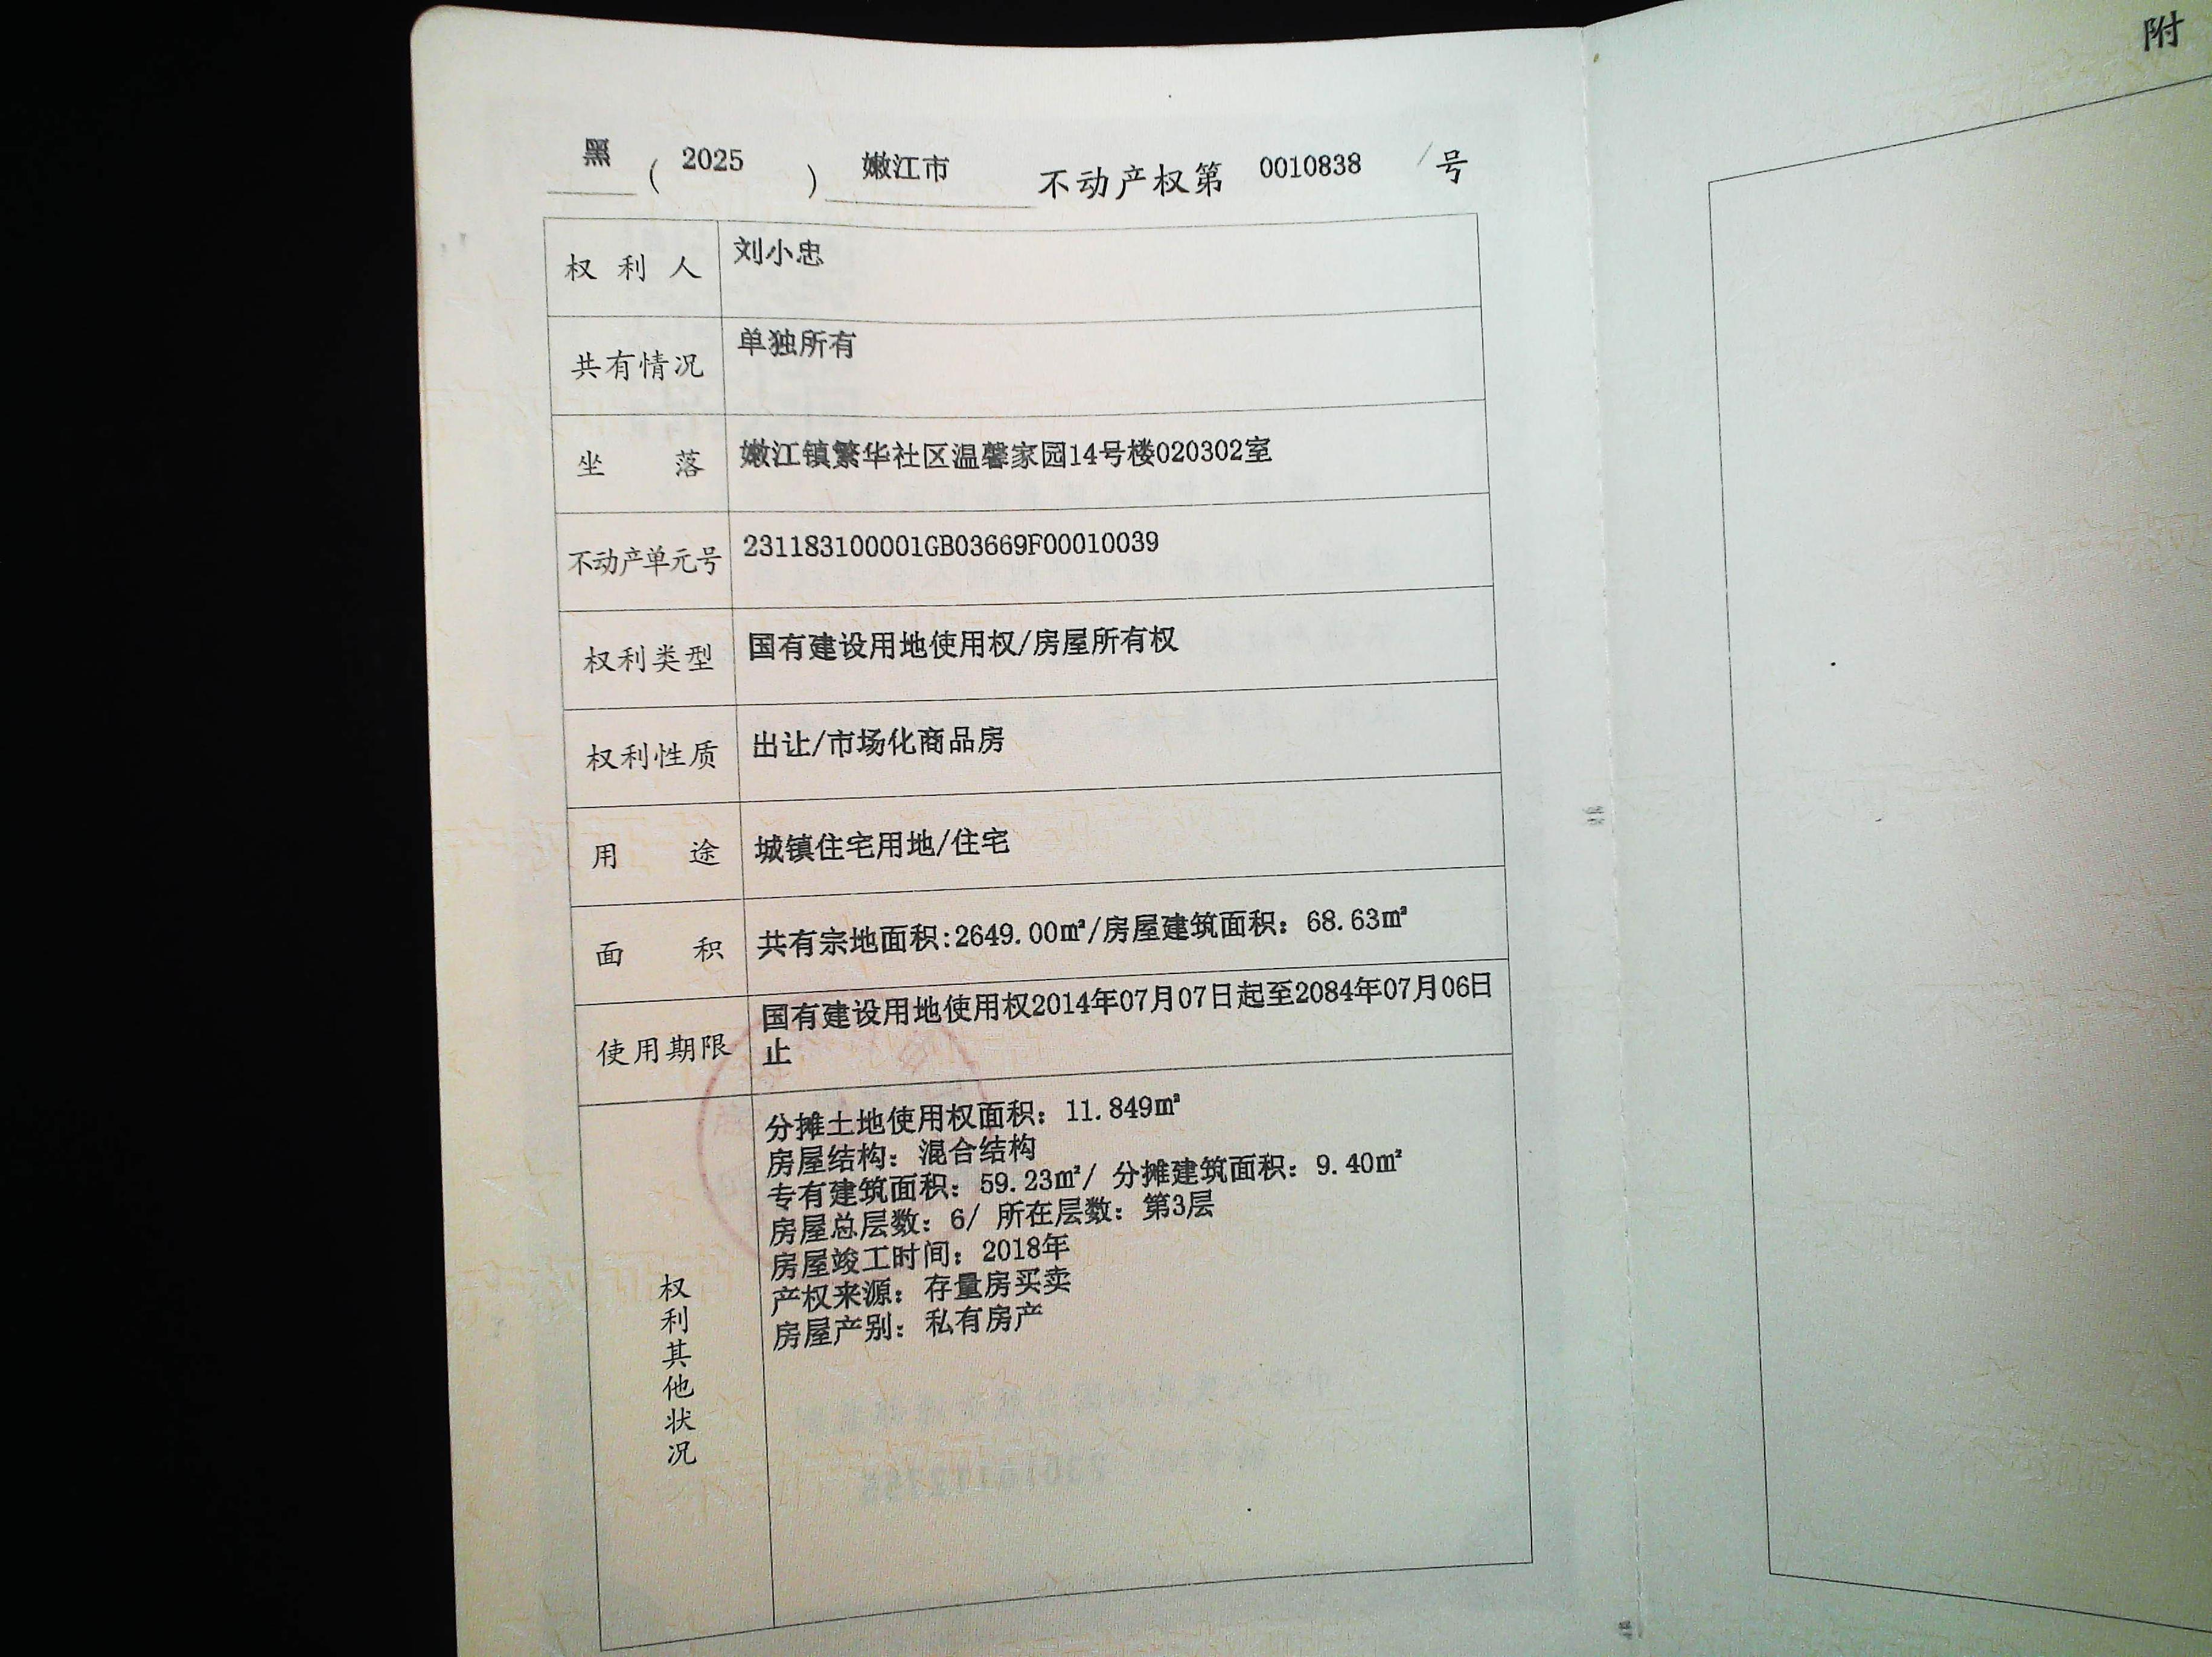 黑 ( 2025 ) 嫩江市 不动产权第 0010838 号
附
权利人 刘小忠
共有情况 单独所有
坐落 嫩江镇繁华社区温馨家园14号楼020302室
不动产单元号 231183100001GB03669F00010039
权利类型 国有建设用地使用权/房屋所有权
权利性质 出让/市场化商品房
用途 城镇住宅用地/住宅
面积 共有宗地面积:2649.00㎡/房屋建筑面积：68.63㎡
使用期限 国有建设用地使用权2014年07月07日起至2084年07月06日
止
权利其他状况
分摊土地使用权面积：11.849㎡
房屋结构：混合结构
专有建筑面积：59.23㎡/ 分摊建筑面积：9.40㎡
房屋总层数：6/ 所在层数：第3层
房屋竣工时间：2018年
产权来源：存量房买卖
房屋产别：私有房产